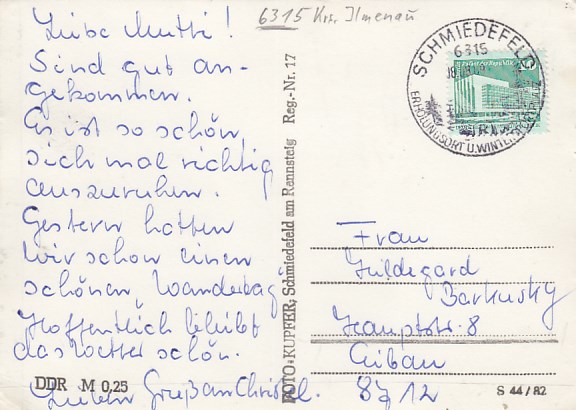 6315 Krs. Ilmenau
Liebe Mutti!
Sind gut an-
gekommen.
Es ist so schön,
sich mal richtig
auszuruhen.
Gestern hatten
wir schon einen
schönen „Wandertag"
Hoffentlich bleibt
das Wetter schön.
Lieben Gruß an Christel.
DDR M 0,25
FOTO-KUPFER, Schmiedefeld am Rennsteig Reg.-Nr. 17
SCHMIEDEFELD
6315
ERHOLUNGSORT U. WINTERSPORTPLATZ
Frau
Hildegard
Barkusky
Hauptstr. 8
Eibau
8712
S 44/82